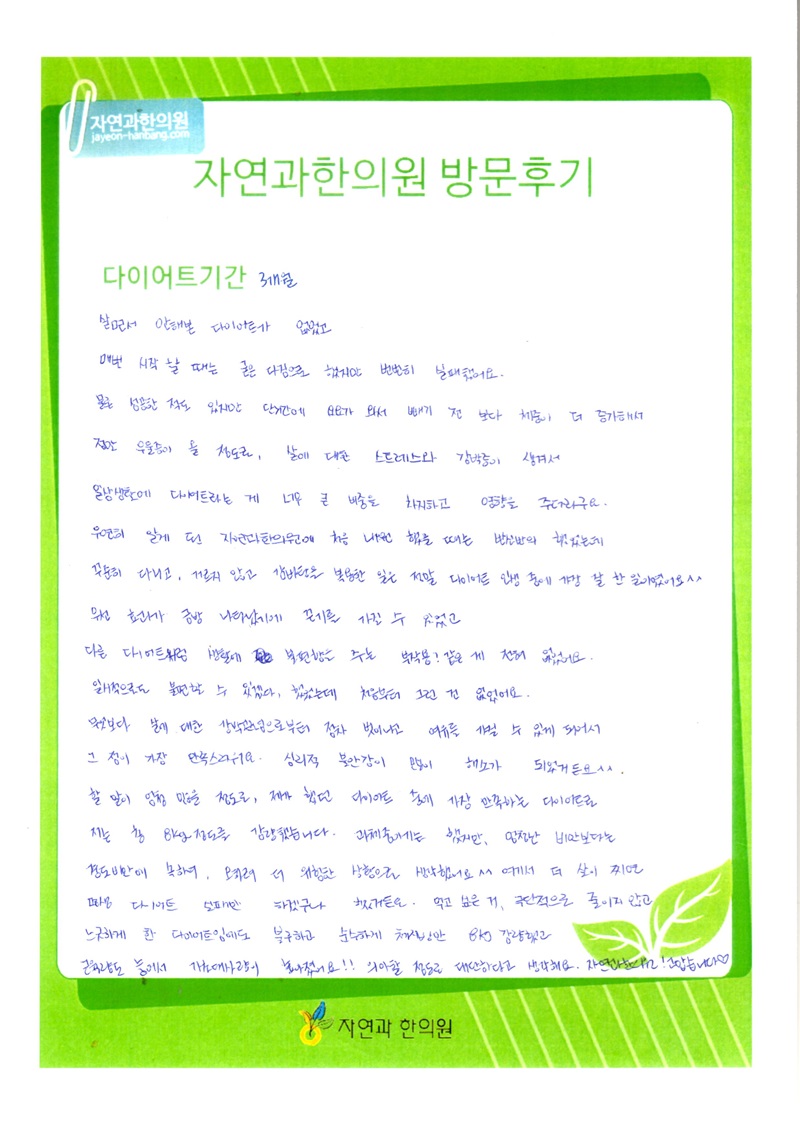 자연과한의원
jayeon-hanbang.com
자연과한의원 방문후기
다이어트기간 3개월
살면서 안해본 다이어트가 없었고
매번 시작 할 때는 굳은 다짐으로 했지만 번번히 실패했어요.
물론 성공한 적도 있지만 단기간에 요요가 와서 빼기 전 보다 체중이 더 증가해서
정말 우울증이 올 정도로, 살에 대한 스트레스와 강박증이 생겨서
일상생활에 다이어트라는 게 너무 큰 비중을 차지하고 영향을 주더라구요.
우연히 알게 된 자연과한의원에 처음 내원 했을 때는 반신반의 했었는데
꾸준히 다니고, 거르지 않고 감비탕을 복용한 일은 정말 다이어트 인생 중에 가장 잘 한 일이였어요^^
우선 효과가 금방 나타났기에 끈기를 가질 수 있었고
다른 다이어트처럼 생활에 불편함을 주는 부작용! 같은 게 전혀 없었어요.
일시적으로도 불편할 수 있겠다, 했었는데 처음부터 그런 건 없었어요.
무엇보다 살에 대한 강박관념으로부터 점차 벗어나고 여유를 가질 수 있게 되어서
그 점이 가장 만족스러워요. 심리적 불안감이 많이 해소가 되었거든요^^.
할 말이 엄청 많을 정도로, 제가 했던 다이어트 중에 가장 만족하는 다이어트로
저는 총 8kg 정도를 감량했습니다. 과체중이기는 했지만, 엄청난 비만보다는
경도비만에 속하여, 오히려 더 위험한 상황으로 생각했어요^^ 여기서 더 살이 찌면
매일 다이어트 실패만 하겠구나 했었거든요. 먹고 싶은 거, 극단적으로 줄이지 않고
느긋하게 한 다이어트임에도 불구하고 순수하게 체지방만 8kg 감량했고
근육량도 늘어서 기초대사량이 높아졌어요!! 의아할 정도로 대단하다고 생각해요. 자연과한의원! 고맙습니다♡
자연과 한의원